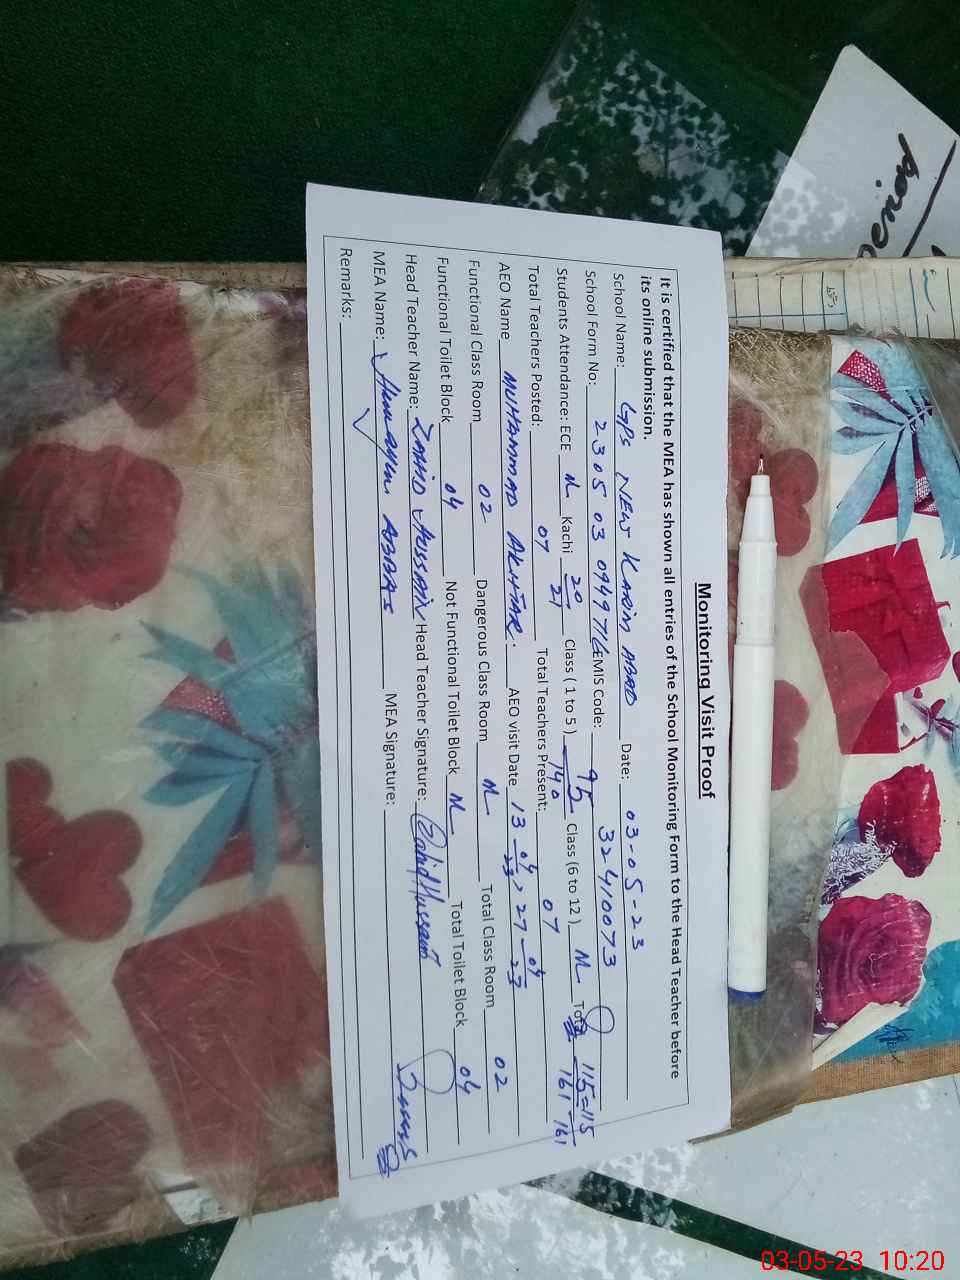 Monitoring Visit Proof
It is certified that the MEA has shown all entries of the School Monitoring Form to the Head Teacher before
its online submission.
School Name: GPS NEW KARIM ABAD Date: 03-05-23
School Form No: 2305 03 094976 EMIS Code: 32410073
Students Attendance: ECE N Kachi 20/21 Class ( 1 to 5 ) 95/140 Class (6 to 12 ) N Total 115=115/161 161
Total Teachers Posted: 07 Total Teachers Present: 07
AEO Name MUHAMMAD AKHTAR: AEO visit Date 13 04/23, 27-04/23
Functional Class Room 02 Dangerous Class Room N Total Class Room 02
Functional Toilet Block 04 Not Functional Toilet Block N Total Toilet Block 04
Head Teacher Name: ZAHID HUSSAIN Head Teacher Signature: Zahid Hussain
MEA Name: Humayun ABBAS MEA Signature:
Remarks:
period
03-05-23 10:20